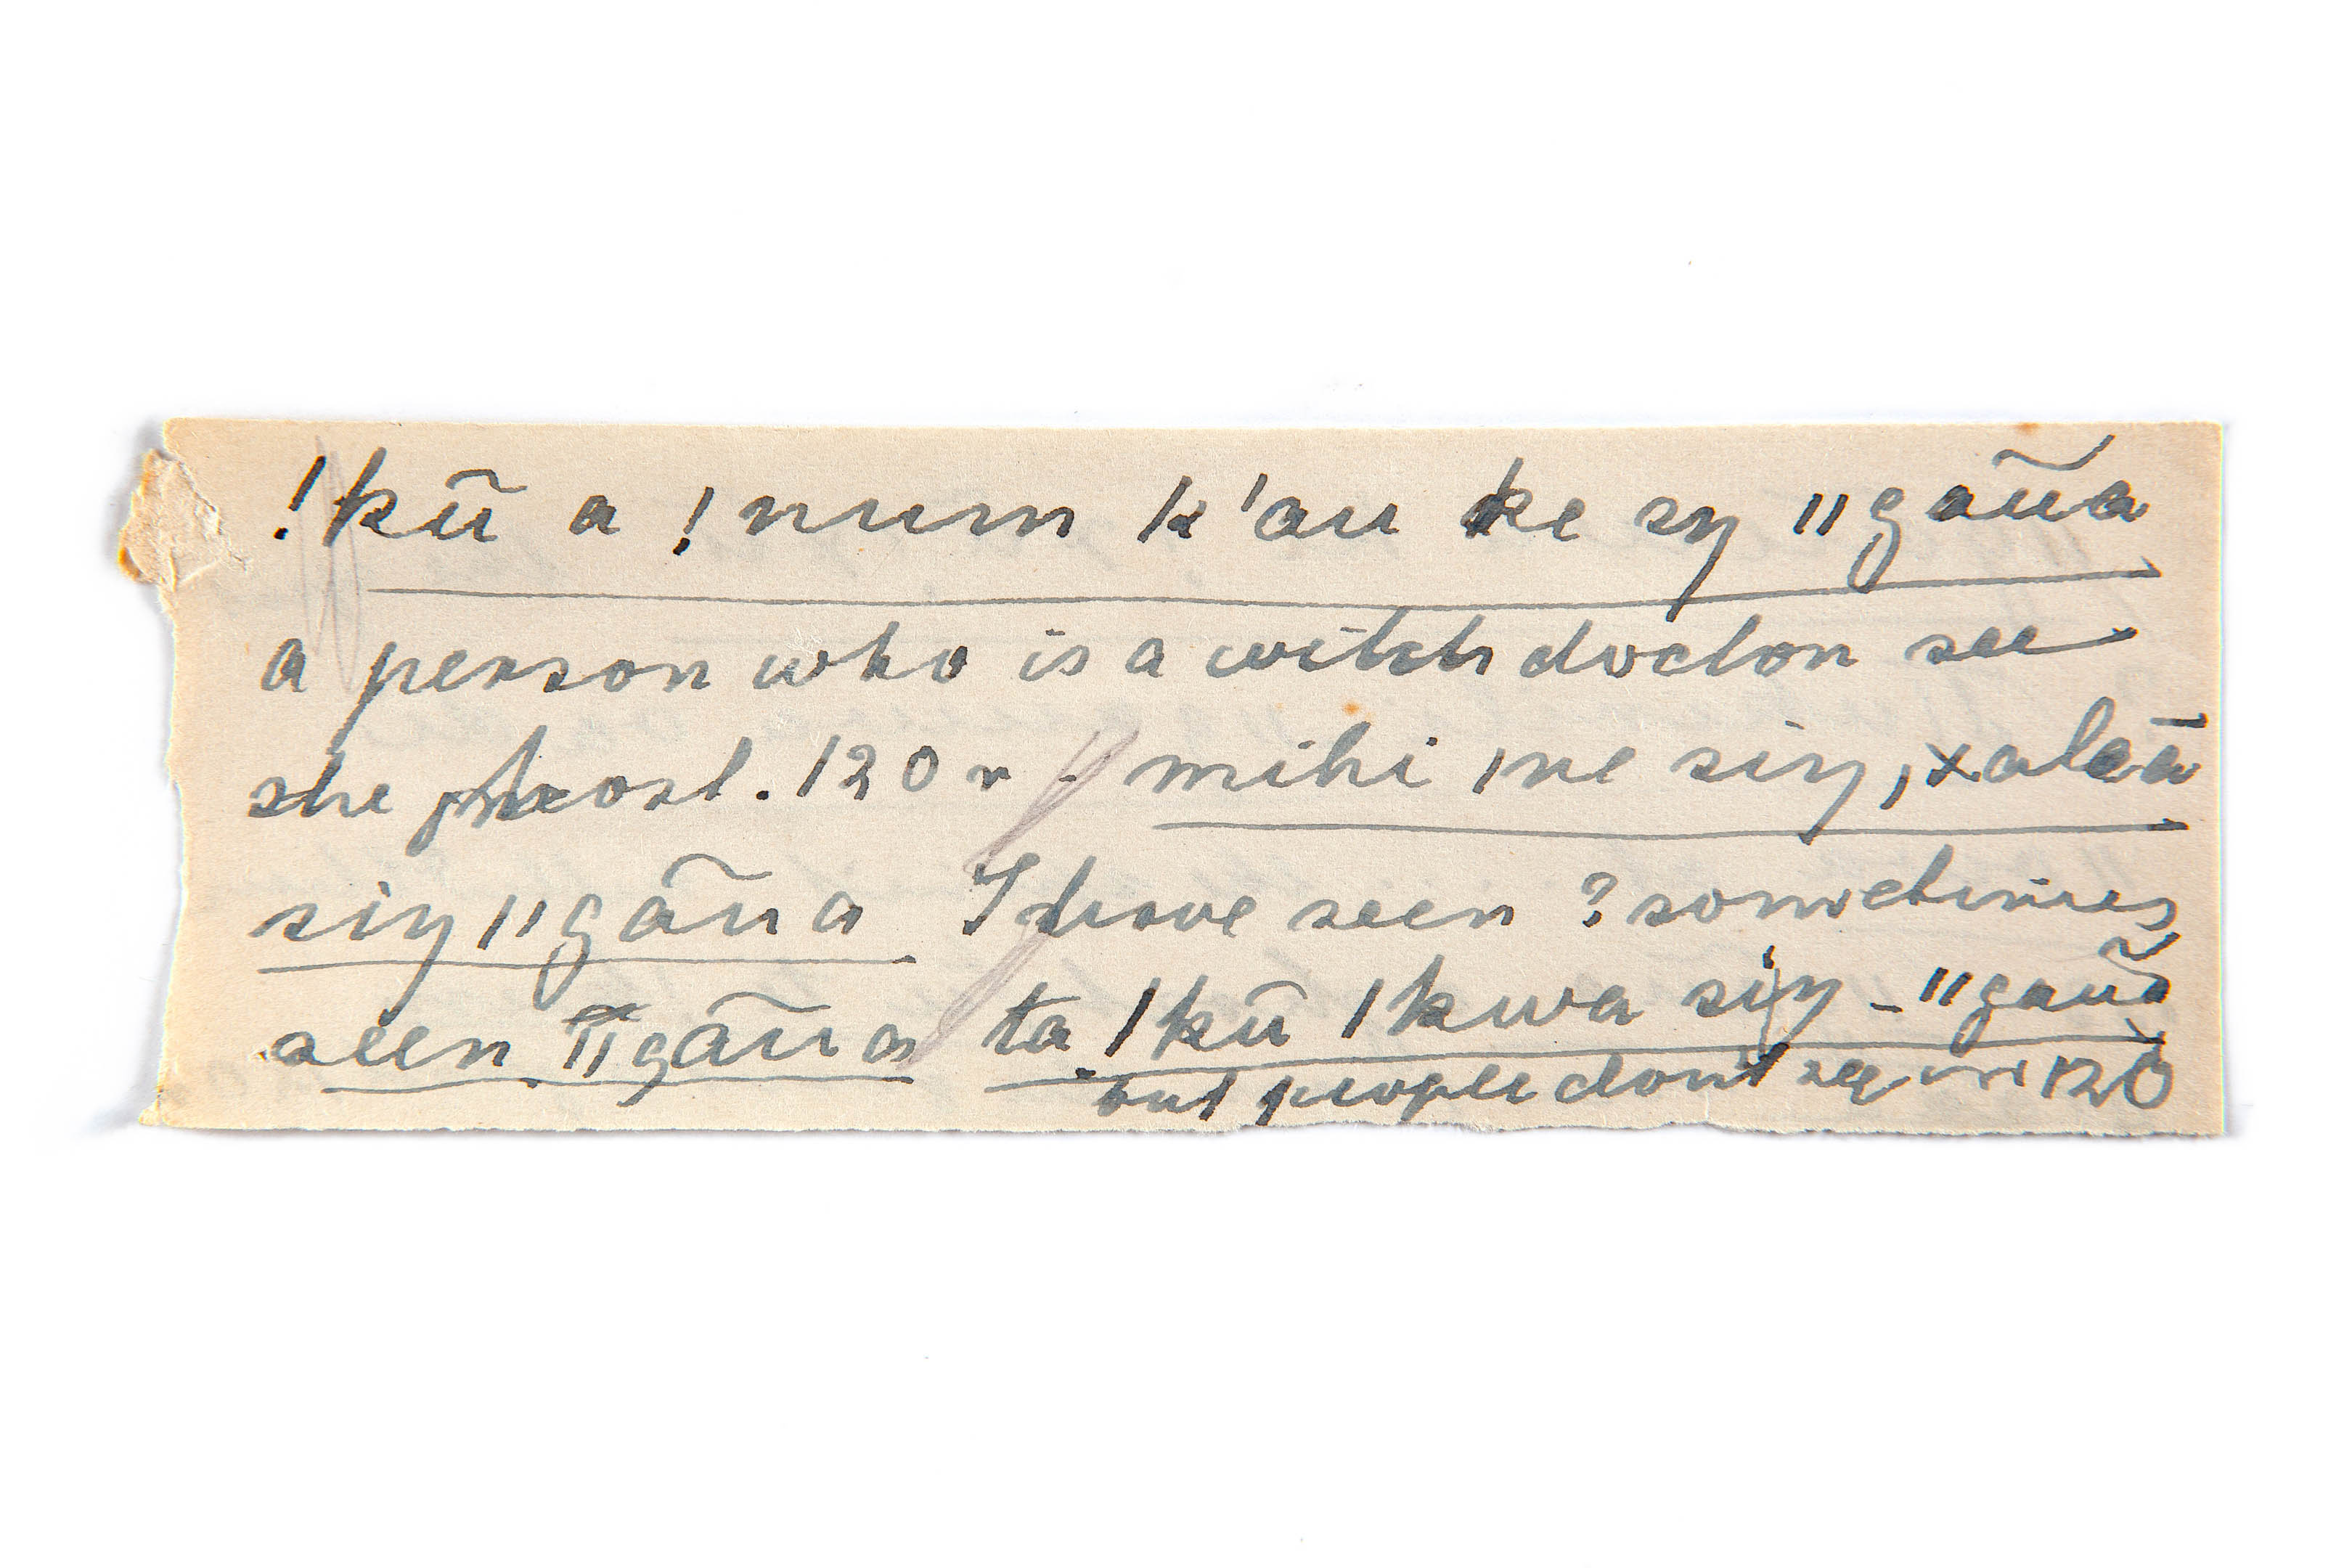 !kū a !num k'au ke sŋ ‖gãũa
a person who is a witch doctor see
she ghost. 120 r - mihi ne siŋ,
siŋ ‖gãũa I have seen ? sometimes
seen ‖gãũa ta !kũ !kwa siŋ - ‖gauã
but people dont see 120